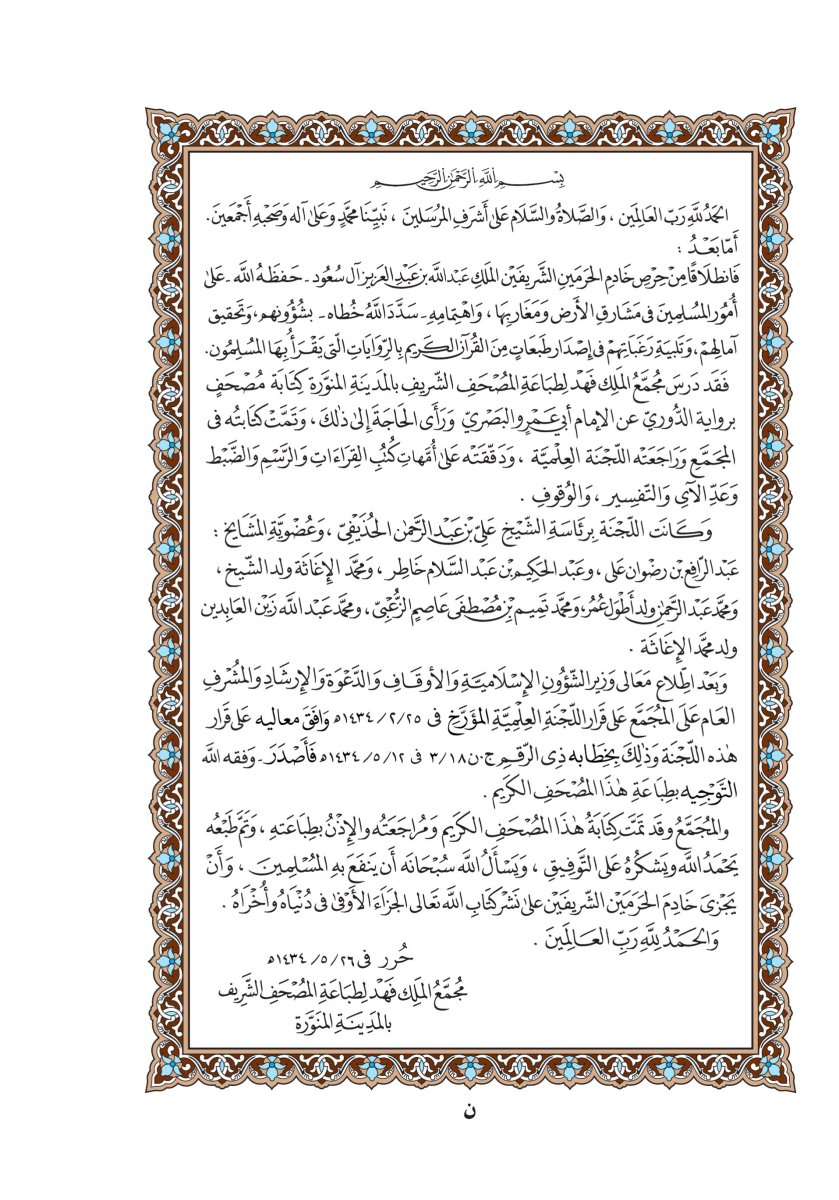 بِسْمِ اللَّهِ الرَّحْمَٰنِ الرَّحِيمِ
الحَمْدُ للَّهِ رَبِّ العَالَمِين ، وَالصَّلَاةُ وَالسَّلَام عَلىٰ أَشرَفِ المُرْسَلين ، نَبيِّنَا محمَّدٍ وَعَلىٰ آله وَصَحْبهِ أَجْمَعين.
أَمّا بَعْدُ :
فَانطلَاقًا مِنْ حِرْصِ خَادِمِ الحَرَمَينِ الشَّرِيفَيْن الملكِ عَبد الله بن عَبد العَزيز آل سُعُود - حَفظَهُ الله - عَلىٰ
أُمُورِ المُسْلِمينَ فى مَشَارقِ الأَرضِ وَمَغَاربِهَا ، وَاهْتِمَامِهِ - سَدَّدَ اللَّهُ خُطاه - بشُؤُونهم، وَتحقيق
آمالِهمْ، وَتَلبيَةِ رَغبَاتِهِمْ فى إِصْدَار طَبَعاتٍ مِنَ القُرآنِ الكَرِيم بِالرِّوَايَاتِ الَّتى يَقْرَأُ بِهَا المُسْلِمُون.
فَقَد دَرَسَ مُجَمَّعُ المَلِكِ فَهْد لِطِبَاعَةِ المُصْحَفِ الشَّرِيفِ بالمَدِينَةِ المنَوَّرَةِ كِتَابَةَ مُصْحَفٍ
برواية الدُّوريّ عن الإمام أبي عَمْرٍو البَصْرِيّ وَرَأَى الحَاجَةَ إِلىٰ ذٰلكَ ، وَتَمَّتْ كتَابَتُه فى
المُجَمَّعِ وَرَاجَعَتْه اللَّجْنَة العِلْميَّة ، وَدَقَّقَتْه عَلىٰ أُمَّهاتِ كُتُبِ القِرَاءَاتِ وَالرَّسْمِ وَالضَّبْط
وَعَدِّ الآىِ وَالتَّفْسِير ، وَالوُقوفِ .
وَكَانَت اللَّجْنَة برئَاسَةِ الشَّيْخِ عَلِيِّ بْن عَبد الرَّحمٰن الحُذَيْفِيّ ، وَعُضْوِيَّةِ المَشَايخِ :
عَبد الرَّافِع بن رضْوان عَلى ، وعَبد الحَكِيم بن عَبد السَّلَام خَاطِر ، وَمحمَّد الإِغَاثَة ولد الشَّيخ ،
وَمحمَّد عَبد الرَّحمٰن ولد أَطْولْ عُمُر، وَمحمَّد تَمِيم بْن مُصْطَفَى عَاصِم الزُّعْبيّ، ومحمَّد عَبد الله زَيْن العَابدِين
ولد محمَّد الإِغَاثَة .
وَبَعْدَ اطِّلاعِ مَعَالى وَزير الشُّؤُونِ الإِسْلَاميَّةِ وَالأَوقَافِ وَالدَّعْوَةِ وَالإِرشَادِ وَالمُشْرِفِ
العَام عَلَى المُجَمَّعِ عَلى قَرَارِ اللَّجْنَةِ العِلمِيَّةِ المؤَرَّخ فى ٢٥/ ٢/ ١٤٣٤ه‍ وَافَقَ معاليه عَلى قَرار
هٰذه اللَّجْنَةِ وَذٰلِكَ بخِطَابه ذِى الرَّقم ج.ن ٣/١٨ فى ١٢/ ٥/ ١٤٣٤ه‍ فَأَصْدَرَ - وَفقه الله
التَّوجِيه بطبَاعَةِ هٰذَا المُصْحَفِ الكَريم .
والمُجَمَّعُ وقد تمَّت كِتَابَةُ هٰذَا المُصْحَفِ الكَريم وَمُراجَعَتُه والإِذْنُ بطِبَاعَتهِ ، وَتَمَّ طَبْعُه
يَحْمَدُ الله وَيَشكرُهُ عَلى التَّوفِيق ، وَيَسْأَلُ الله سُبْحَانَه أَن يَنفَعَ بهِ المُسْلِمِينَ ، وَأَنْ
يَجْزِىَ خَادِمَ الحَرَمَيْنِ الشَّرِيفَيْن عَلىٰ نَشْر كِتَابِ اللَّه تعَالى الجَزَاءَ الأَوْفىٰ فى دُنْيَاهُ وأُخْرَاهُ .
وَالحَمْدُ لِلَّهِ رَبِّ العَالَمِينَ .
حُرر فى ٢٦/ ٥/ ١٤٣٤ه‍
مُجَمَّعُ المَلِك فَهْد لِطِبَاعَةِ المُصْحَفِ الشَّرِيف
بالمَدِينَةِ المنَوَّرَةِ
ن